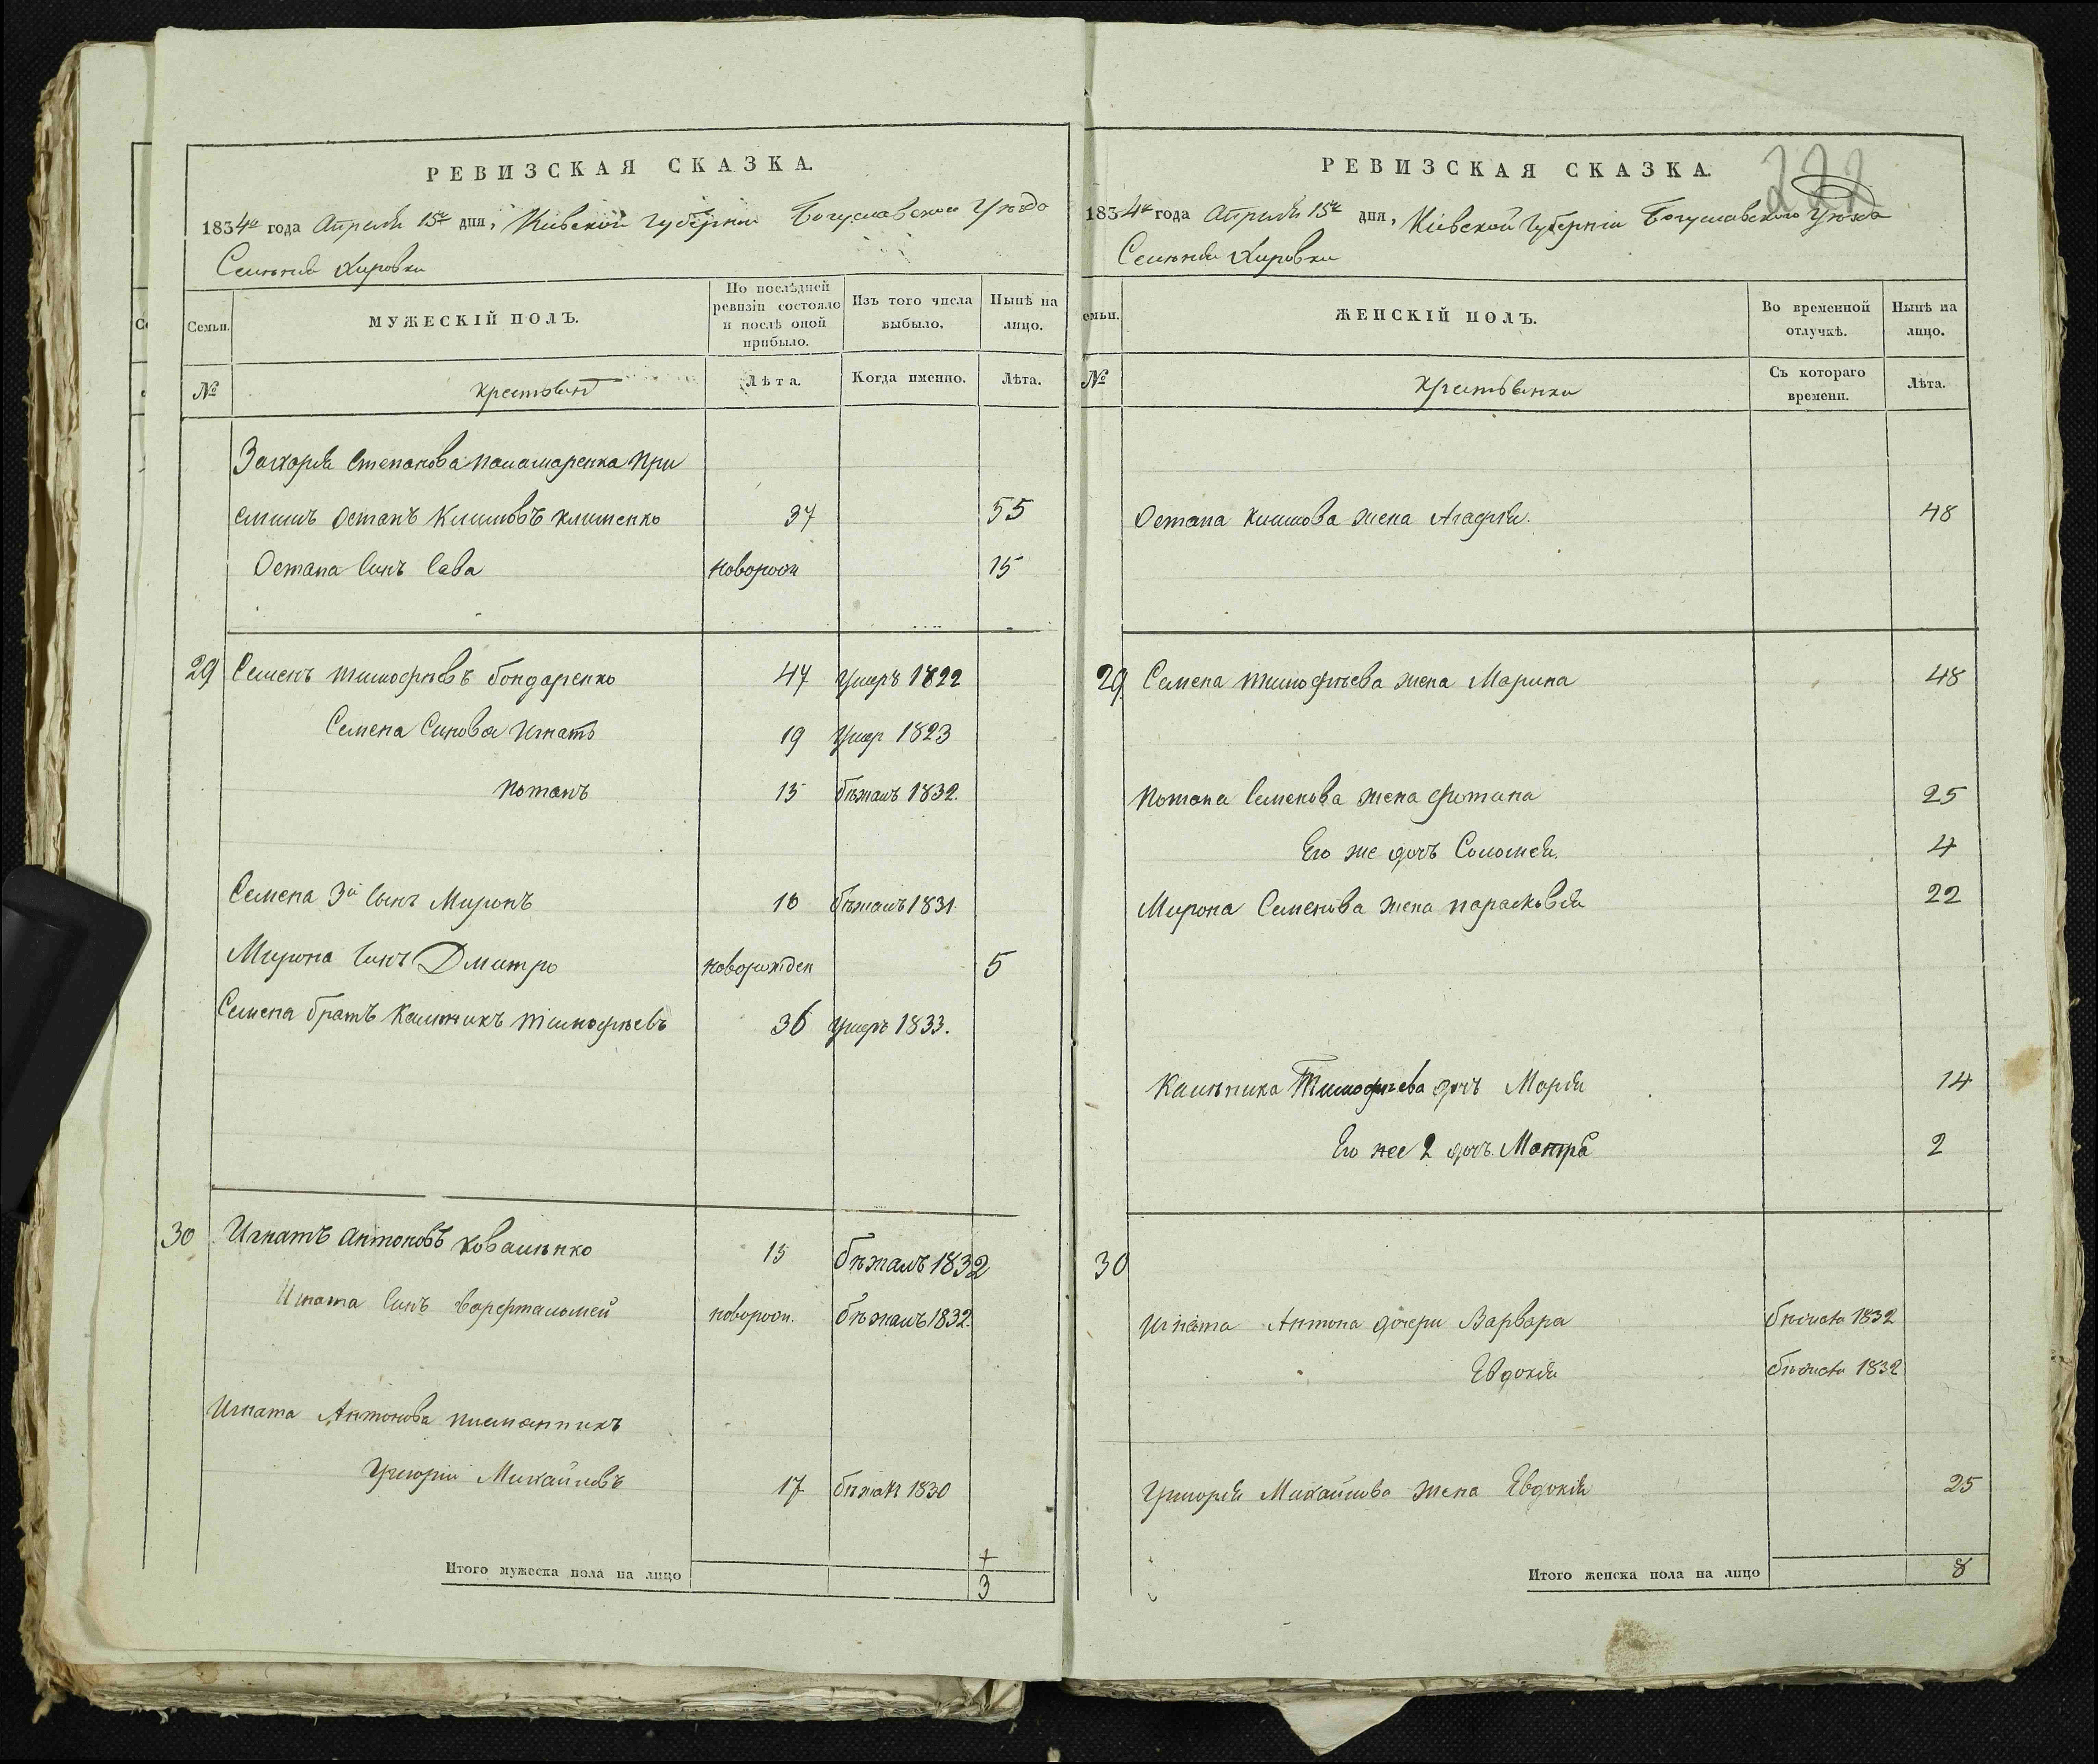 РЕВИЗСКАЯ СКАЗКА.
1834го года Апреля 15го дня, Кіевской Губерніи Богуславского Уѣзда
Селенія Хировки
Семьи.
МУЖЕСКІЙ ПОЛЪ.
По послѣдней ревизіи состояло и послѣ оной прибыло.
Изъ того числа выбыло.
Нынѣ на лицо.
№
крестьянъ
Лѣта.
Когда именно.
Лѣта.
Захарія Степанова панамаренка При
емышъ Остапъ Климовъ клименко 37 55
Остапа Синъ Сава новорож 15
29 Семенъ тимофѣевъ бондаренко 47 Умеръ 1822
Семена Синовя Игнатъ 19 Умер 1823
потапъ 15 бѣжалъ 1832.
Семена 3й Сынъ Миронъ 10 бѣжалъ 1831.
Мирона Синъ Дмитро новорожден 5
Семена братъ Калѣникъ тимофѣевъ 36 умеръ 1833.
30 Игнатъ антоновъ коваленко 15 бѣжалъ 1832
Игната Синъ варфталомей новорож. бѣжалъ 1832.
Игната Антонова племянникъ
Григорій Михайловъ 17 бѣжалъ 1830
Итого мужеска пола на лицо
+
3
222
РЕВИЗСКАЯ СКАЗКА.
1834го года Апреля 15го дня, Кіевской Губерніи Богуславского Уѣзда
Селенія Хировки
емьи.
ЖЕНСКІЙ ПОЛЪ.
Во временной отлучкѣ.
Нынѣ на лицо.
№
крестьянки
Съ котораго времени.
Лѣта.
Остапа климова жена Агафія. 48
29 Семена тимофѣева жена Марина 48
потапа Семенова жена фотина 25
Его же дочь Соломея. 4
Мирона Семенова жена парасковія 22
Калѣника Тимофѣева дочь Марія 14
Его же 2 дочь Мотря 2
30
Игната Антона дочери Варвара бѣжала 1832
Евдокія бѣжала 1832
Григорія Михайлова жена Евдокія 25
Итого женска пола на лицо 8